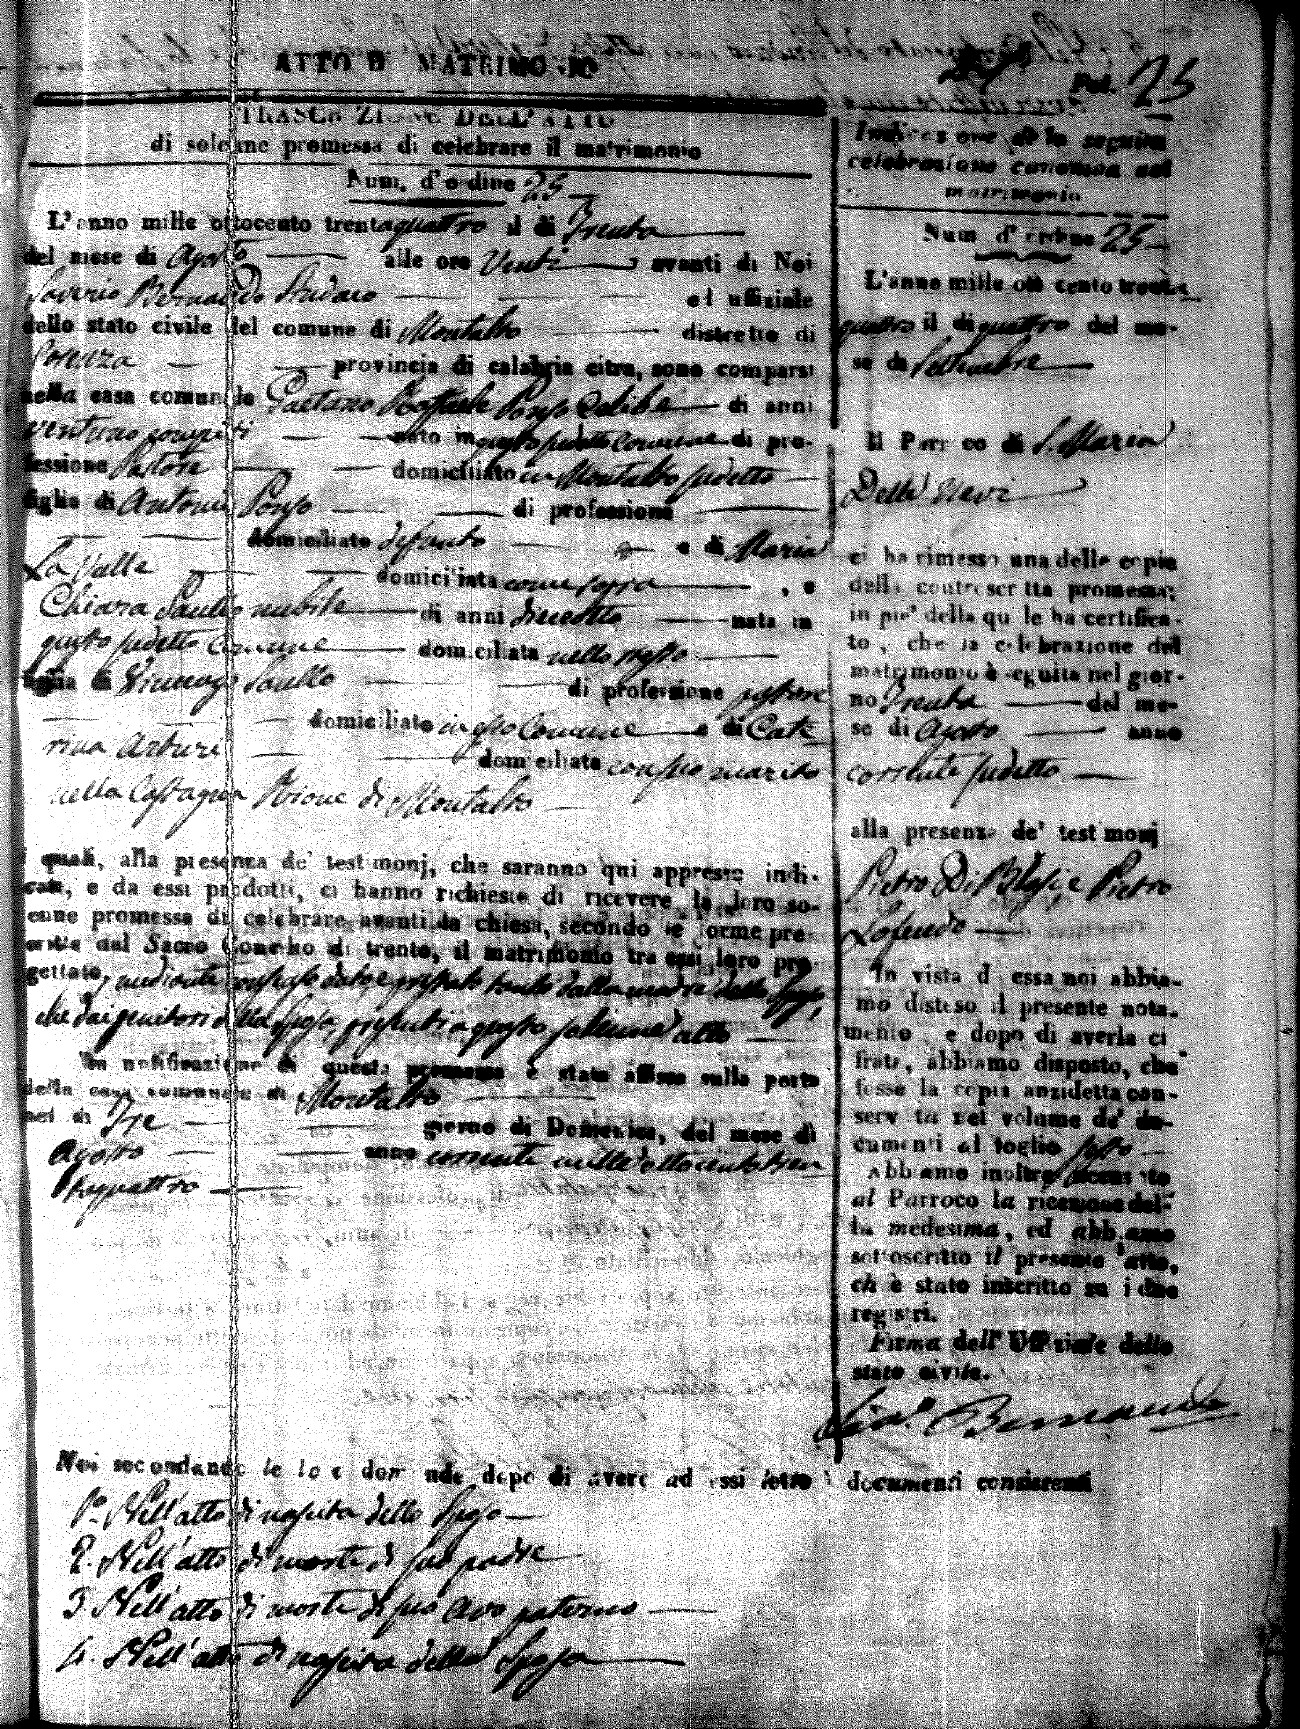 ATTO DI MATRIMONIO
Fol. 25
TRASCRIZIONE DELL'ATTO
di solenne promessa di celebrare il matrimonio
Num. d'ordine 25
L'anno mille ottocento trentaquattro il di Trenta
del mese di Agosto alle ore Venti avanti di Noi
Saverio Bernardo Sindaco ed uffiziale
dello stato civile del comune di Montalto distretto di
Cosenza provincia di calabria citra, sono comparsi
nella casa comunale Gaetano Raffaele Porso Celibe di anni
ventuno compiti nato in questo predetto Comune di pro-
fessione Pastore domiciliato in Montalto predetto
figlio di Antonio Porso di professione
domiciliato defunto e di Maria
La Valle domiciliata come sopra , e
Chiara Saullo nubile di anni dieciotto nata in
questo predetto Comune domiciliata nello stesso
figlia di Vincenzo Saullo di professione
domiciliato in esso Comune e di Cate
rina Arturi domiciliata con suo marito
nella Castagna Rione di Montalto
i quali, alla presenza de' testimonj, che saranno qui appresso indi-
cati, e da essi prodotti, ci hanno richiesto di ricevere la loro so-
enne promessa di celebrare avanti la chiesa, secondo le forme pre-
critte dal Sacro Concilio di trento, il matrimonio tra essi loro pro-
gettato, mediante consenso dato e prestato tanto dalla madre dello Sposo,
che dai genitori della Sposa, presenti a questo solenne atto
La notificazione di questa promessa è stata affissa sulla porta
della casa comunale di Montalto
nel di Tre giorno di Domenica, del mese di
Agosto anno corrente mille ottocento tren
taquattro
Noi secondando le loro domande dopo di avere ad essi letto i documenti consistenti
1.o Nell'atto di nascita dello Sposo
2. Nell'atto di morte di suo padre
3 Nell'atto di morte di suo avo paterno
4. Nell'atto di nascita della Sposa
Indicazione della seguita
celebrazione canonica del
matrimonio
Num d'ordine 25
L'anno mille otto cento trenta
quattro il di quattro del me-
se di Settembre
Il Parroco di S. Maria
Della Neve
ci ha rimesso una delle copie
della controscritta promessa;
in pie' della quale ha certifica-
to, che la celebrazione del
matrimonio è seguita nel gior-
no Trenta del me-
se di Agosto anno
corrente predetto
alla presenza de' testimonj
Pietro Di Blasi e Pietro
Lofeudo
In vista di essa noi abbia-
mo disteso il presente nota-
mento, e dopo di averla ci
frata, abbiamo disposto, che
fosse la copia anzidetta con-
servata nel volume de' do-
cumenti al foglio
Abbiamo inoltre accusato
al Parroco la ricezione del-
la medesima, ed abbiamo
sottoscritto il presente atto,
ch' è stato inscritto su i due
registri.
Firma dell' Uffiziale dello
stato civile.
Bernardo